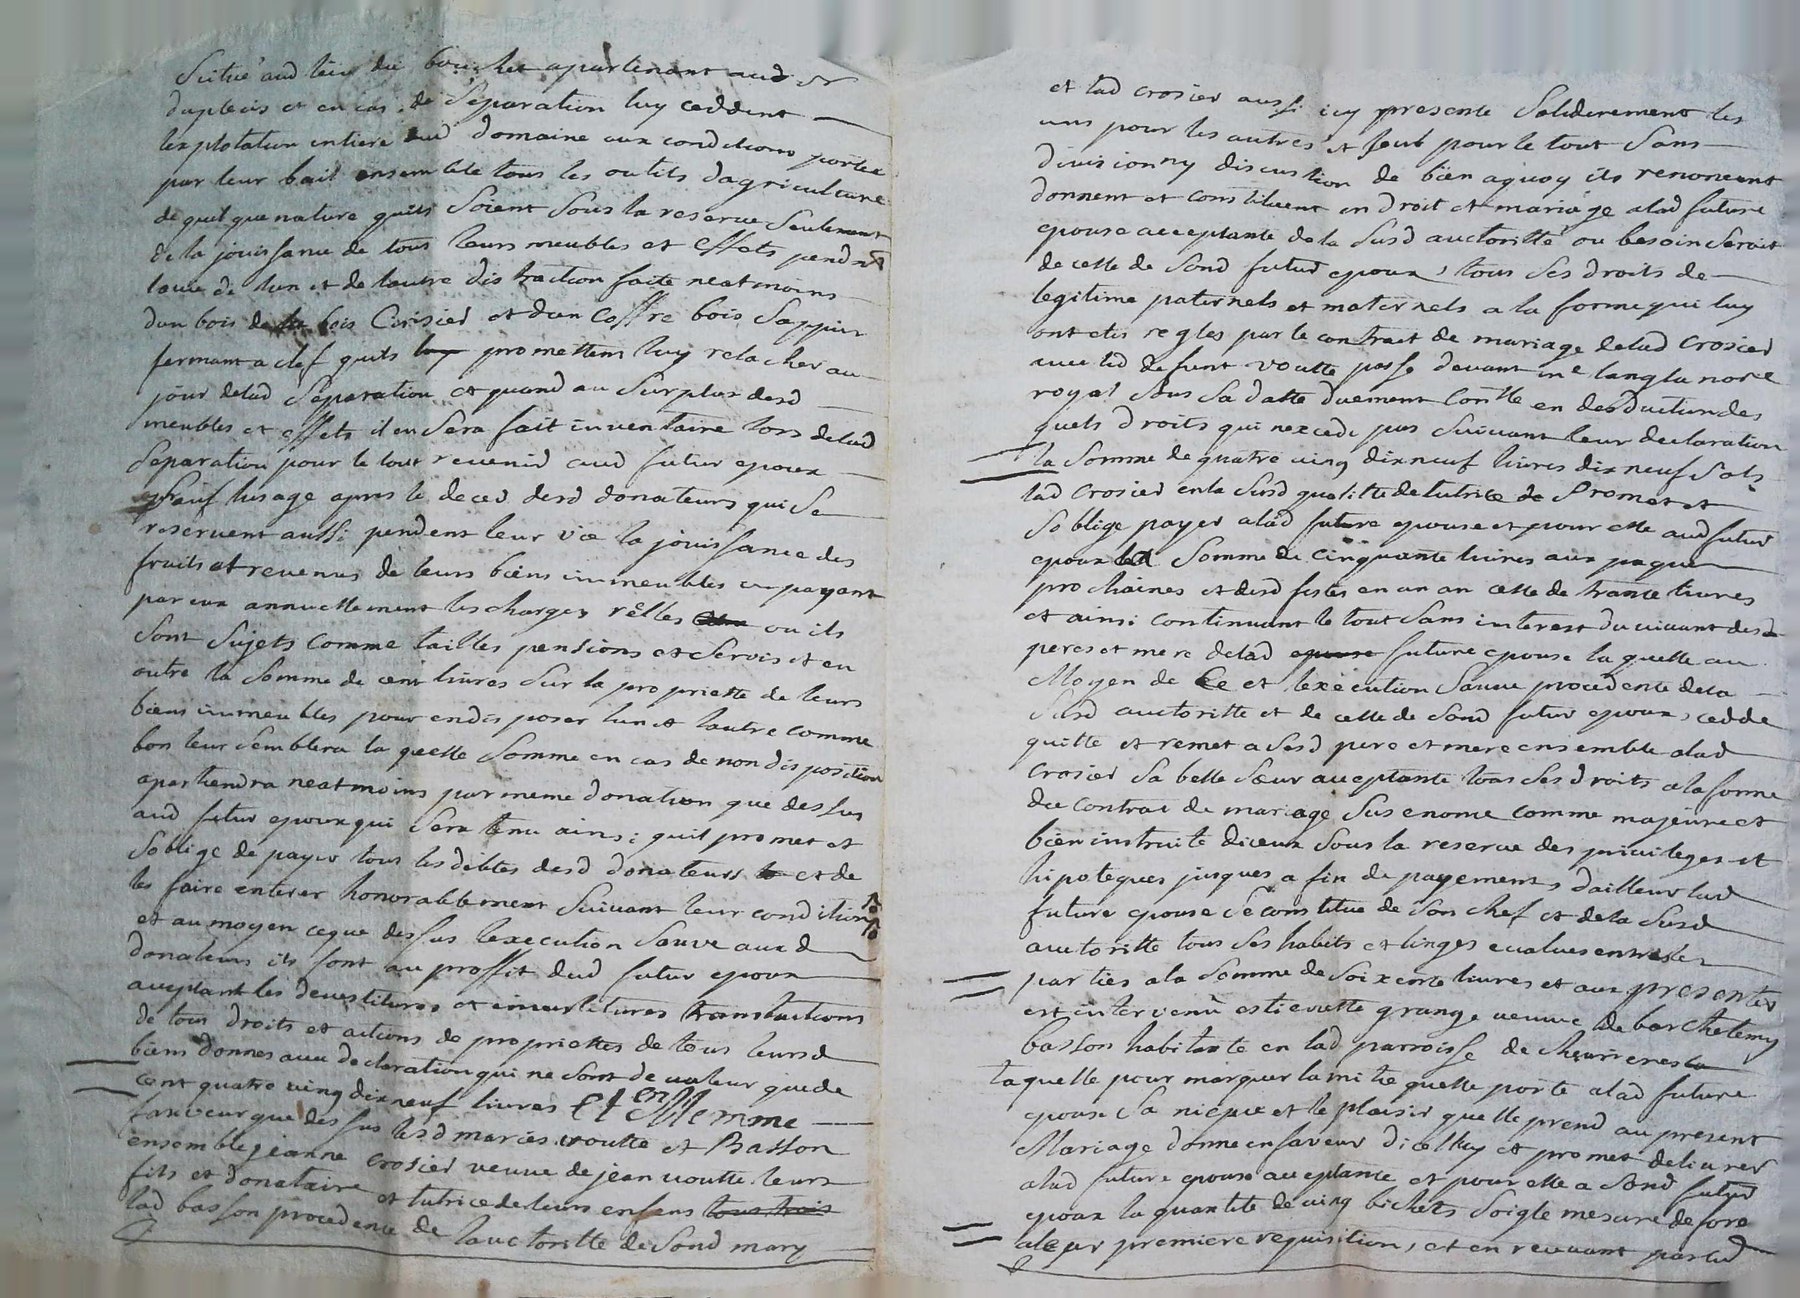 Scitué aud lieu du bouchet apartenant aud Sr
duplecis et en cas de Separation luy ceddent
lexplotation intiere dud domaine aux conditions portee
par leur bail ensemble tous les outils dagriculture
de quelque nature quils Soient Sous la reserve Seulement
de la jouissance de tous leurs meubles et effets pendnt
la vie de lun et de lautre distraction faite neatmoins
dun bois de lit bois Cerisier et dun Coffre bois Sappin
fermant a clef quils luy promettent luy relacher au
jour delad Separation et quand au Surplus desd
meubles et effets il en Sera fait inventaire lors delad
Separation pour le tout revenir aud futur epoux
Sauf lusage apres le deced desd donateurs qui Se
reservent aussi pendent leur vie la jouissance des
fruits et revenus de leurs biens immeubles en payant
par eux annuellement les charges rêlles ou ils
Sont Sujets comme tailles pensions et Servis et en
outre la Somme de cent livres Sur la propriette de leurs
biens immeubles pour en disposer lun et lautre comme
bon leur Semblera la quelle Somme en cas de non disposition
apartiendra neatmoins par meme donation que dessus
aud futur epoux qui Sera tenu ainsi quil promet et
Soblige de payer tous les debtes desd donateurs et de
les faire enterer honorablement Suivant leur condition
et au moyen ce que dessus lexecution Sauve auxd
donateurs ils font au proffit dud futur epoux
aceptant les devestitures et investitures translactions
de tous droits et actions de propriettes de tous leursd
biens donnes avec declaration qui ne Sont de valeur que de
cent quatre vingt dix neuf livres Et en Mesme
faiveur que dessus lesd maries voutte et Basson
ensemble jeanne crosier veuve de jean voutte leurs
fils et donataire et tutrice de leurs enfens tous trois
lad basson procedente de lauctoritte de Sond mary
et lad crosier aussi icy presente Soliderement les
uns pour les autres et Seul pour le tout Sans
division ny discustion de bien aquoy ils renoncent
donnent et constituent en droit et mariage alad future
epouse acceptante de la Susd auctoritté ou besoin Seroit
de celle de Sond futur epoux, tous Ses droits de
legitime paternels et maternels a la forme qui luy
ont etis regles par le contract de mariage delad crosier
avec led defunt voutte passe devant me langla nore
royal Sous Sa datte duement Conlle en desduction des
quels droits qui nexcede pas Suivant leur declaration
la Somme de quatre ving dix neuf livres dix neuf Sols
lad crosier en la Susd qualitte de tutrice de Promet et
Soblige payer alad future epouse et pour elle aud futur
epoux la Somme de cinquante livres aux paques
prochaines et desd festes en un an celle de trante livres
et ainsi continuant le tout Sans interest du vivant desd
peres et mere delad epouse future epouse la quelle au
Moyen de Ce et lexecution Sauve procedente de la
Susd auctoritte et de celle de Sond futur epoux, cedde
quitte et remet a Sesd pere et mere ensemble alad
crosier Sa belle Sœur aceptante tous Ses droits a la forme
du contrat de mariage Sus enome comme majeure et
bien instruite diceux Sous la reserve des privileges et
hipoteques jusques a fin de payement, dailleur lad
future epouse Se constitue de Son chef et de la Susd
auctoritte tous Ses habits et linges evalues entre les
parties a la Somme de Soixente livres et aux presentes
est intervenû estievette grange veuve de barthelemy
basson habitante en lad parroisse de
laquelle pour marquer lamitié quelle porte alad future
epouse Sa niepce et le plaisir quelle prend au present
Mariage donne en faveur dicelluy et promet delivrer
alad future epouse aceptante et pour elle a Sond futur
epoux la quantité de cinq bichets Soigle mesure de fore
aleur premiere requisition, et en recevant par lad